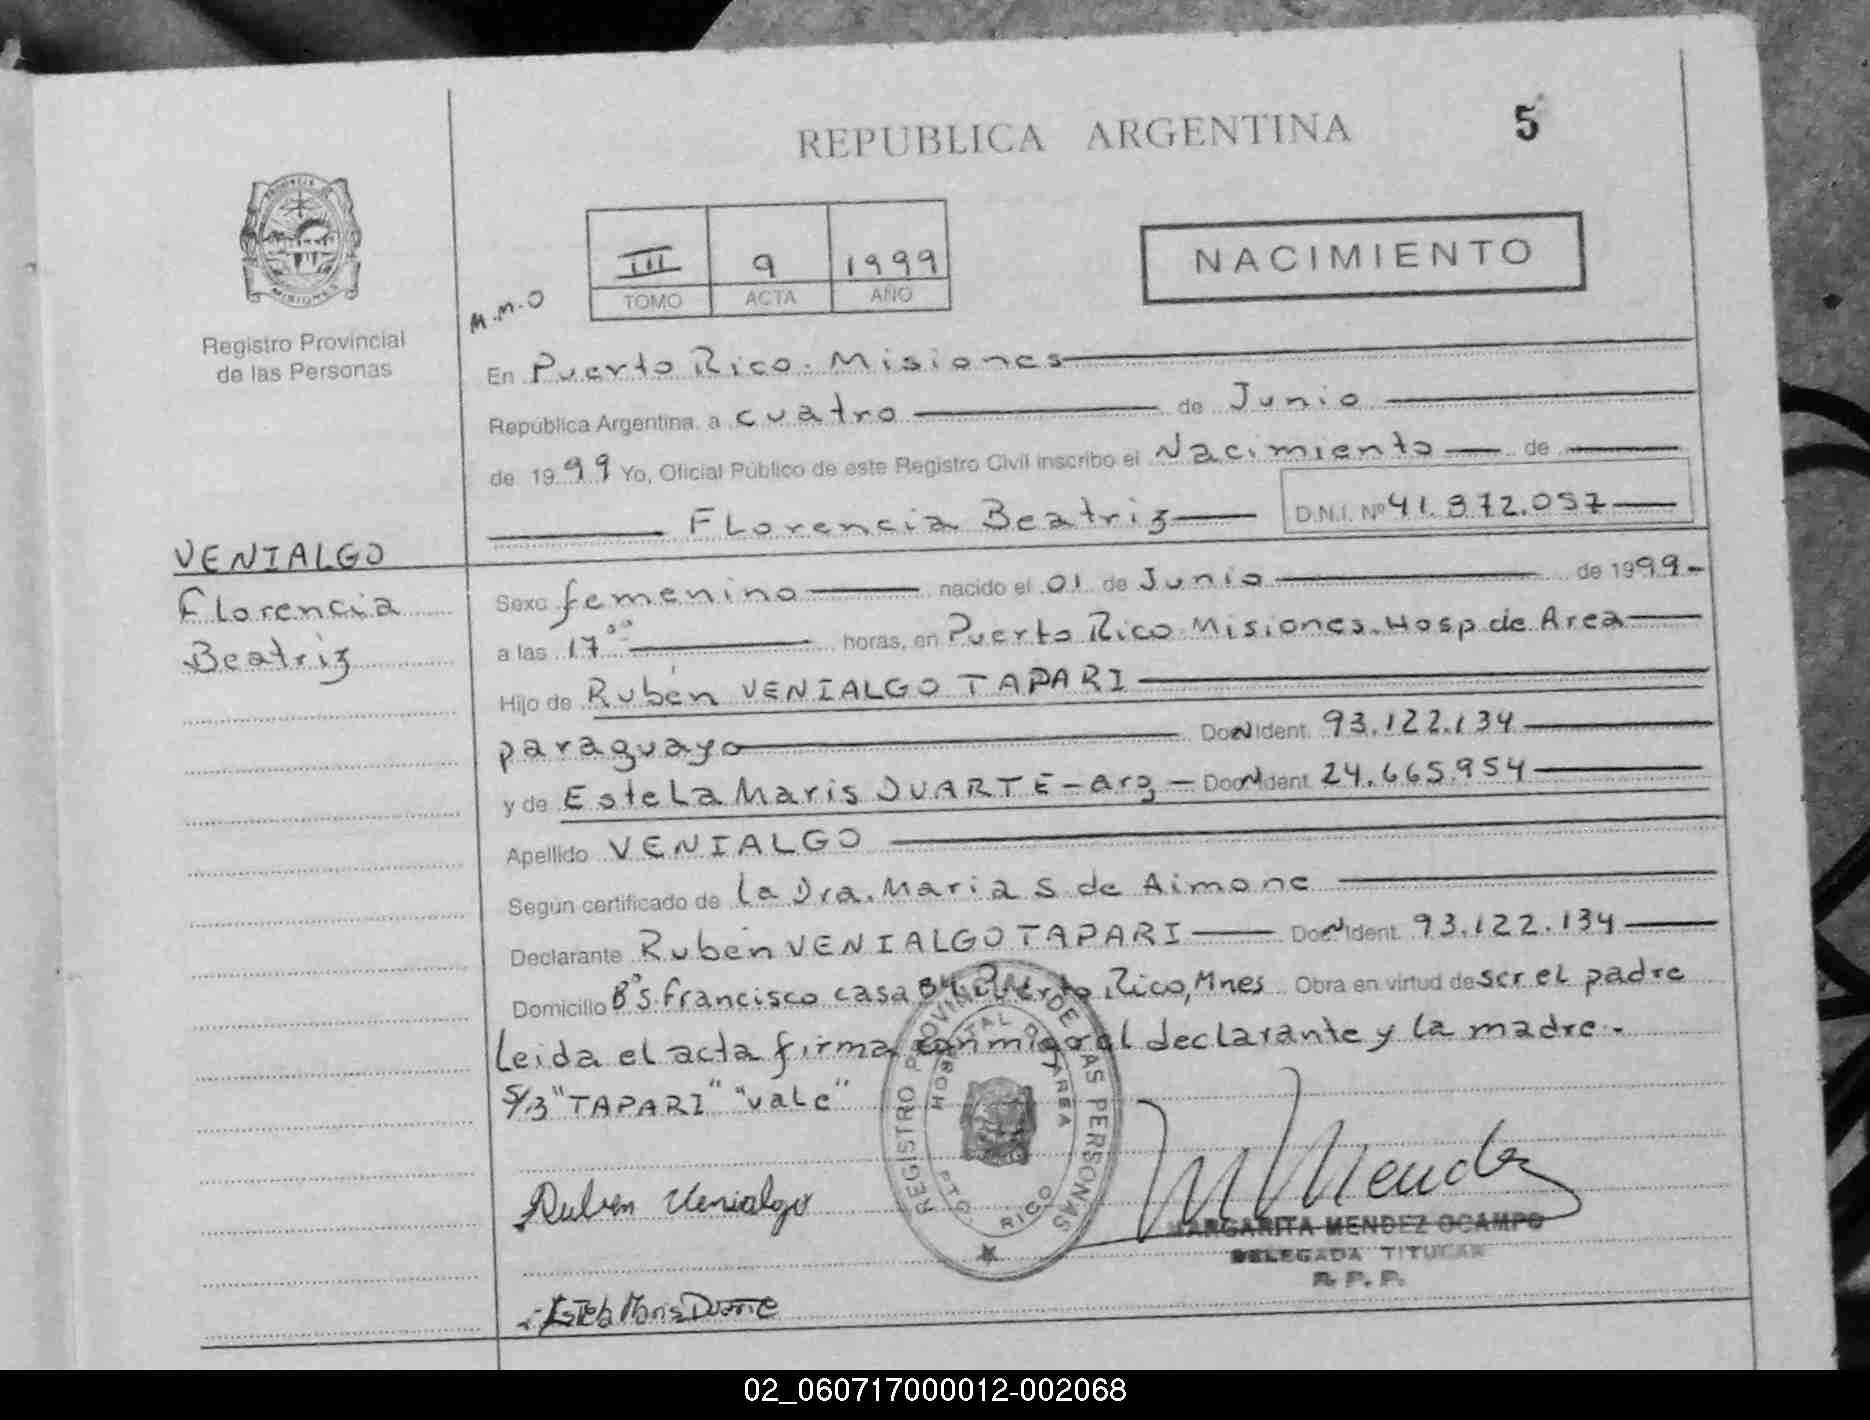 REPUBLICA ARGENTINA
5
PROVINCIA DE
MISIONES
Registro Provincial
de las Personas
III 9 1999
TOMO ACTA AÑO
NACIMIENTO
M.M.O
En Puerto Rico. Misiones
República Argentina, a cuatro de Junio
de 1999 Yo, Oficial Público de este Registro Civil inscribo el Nacimiento de
Florencia Beatriz D.N.I. Nº 41.872.057
VENIALGO
Florencia
Beatriz
Sexo femenino nacido el 01 de Junio de 1999-
a las 17⁰⁰ horas, en Puerto Rico Misiones. Hosp. de Area
Hijo de Rubén VENIALGO TAPARI
paraguayo Doc. Ident. 93.122.134
y de Estela Maris DUARTE - arg - Doc. Ident. 24.665.954
Apellido VENIALGO
Según certificado de la Dra. Maria S de Aimone
Declarante Ruben VENIALGO TAPARI Doc. Ident. 93.122.134
Domicilio Bº S. Francisco casa Puerto Rico, Mnes Obra en virtud de ser el padre
Leida el acta firma conmigo el declarante y la madre.
S/B "TAPARI" "vale"
REGISTRO PROVINCIAL DE LAS PERSONAS
HOSPITAL DE AREA
PTO. RICO
Ruben Venialgo
M Mendez
MARGARITA MENDEZ OCAMPO
DELEGADA TITULAR
R. P. P.
Estela Maris Duarte
02_060717000012-002068